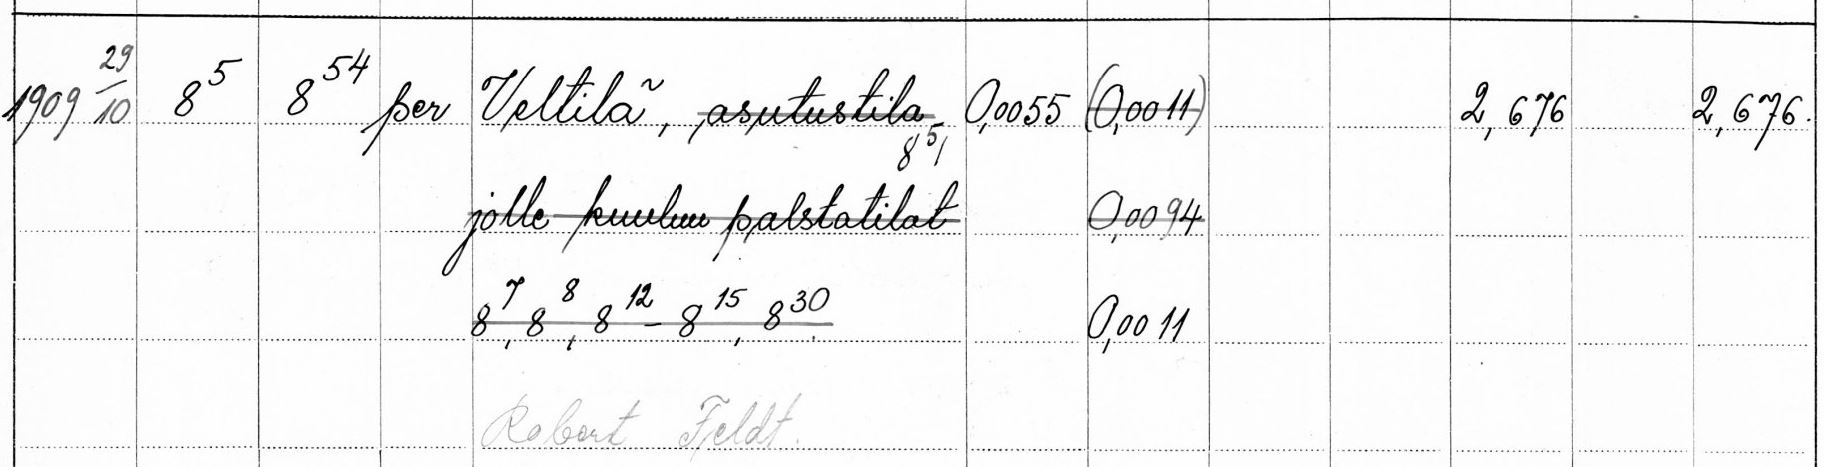 1909 29/10 8⁵ 8⁵⁴ per Veltilä, asutustila 0,0055 (0,0011) 2,676 2,676.
8⁵,
jolle kuuluu palstatilat 0,0094
8⁷, 8⁸, 8¹² – 8¹⁵, 8³⁰. 0,0011
Robert Feldt.